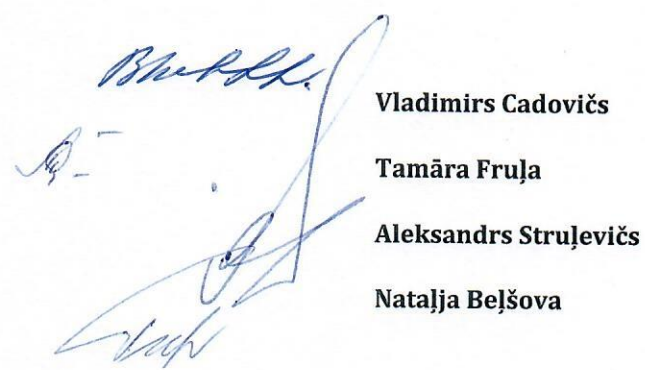 Vladimirs Cadovičs
Tamāra Fruļa
Aleksandrs Struļevičs
Nataļja Beļšova